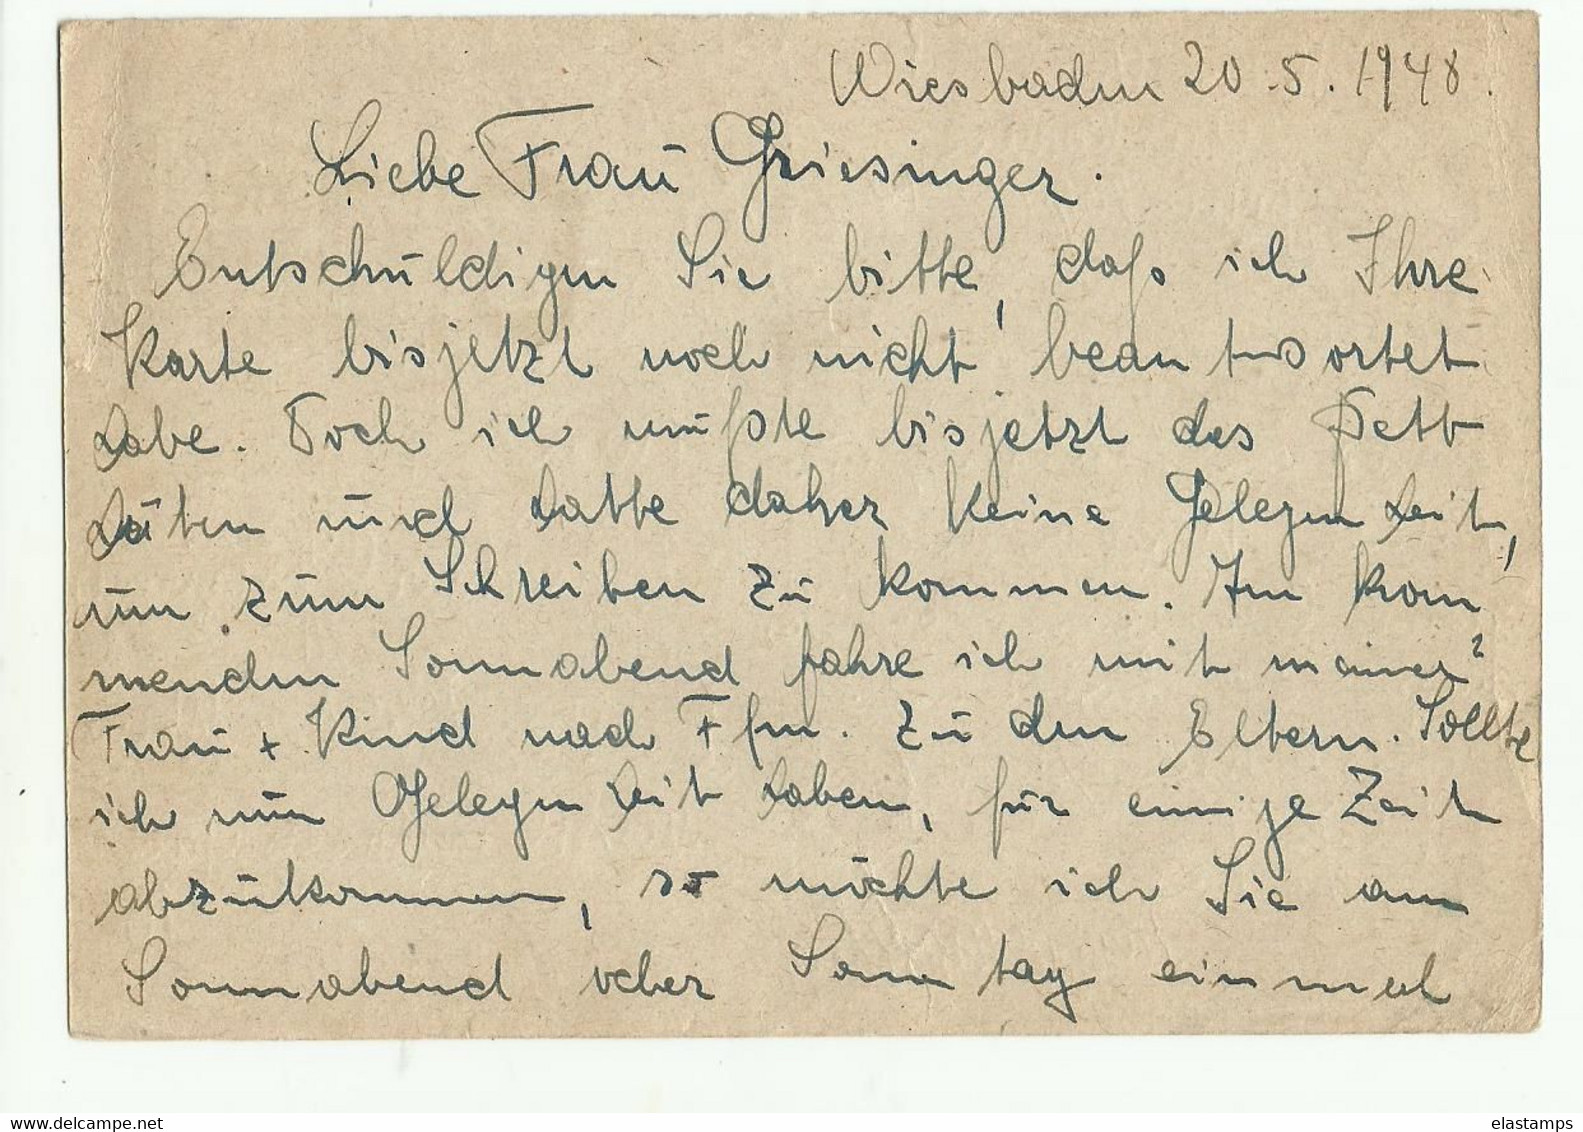 Wiesbaden 20.5.1948.
Liebe Frau Griesinger.
Entschuldigen Sie bitte, daß ich Ihre
Karte bisjetzt noch nicht beantwortet
habe. Doch ich mußte bisjetzt das Bett
hüten und hatte daher keine Gelegenheit,
um zum Schreiben zu kommen. Im kom
menden Sonnabend fahre ich mit meiner
Frau + Kind nach Ffm. zu den Eltern. Sollte
ich nun Gelegenheit haben, für einige Zeit
abzukommen, so möchte ich Sie am
Sonnabend oder Sonntag einmal
elastamps